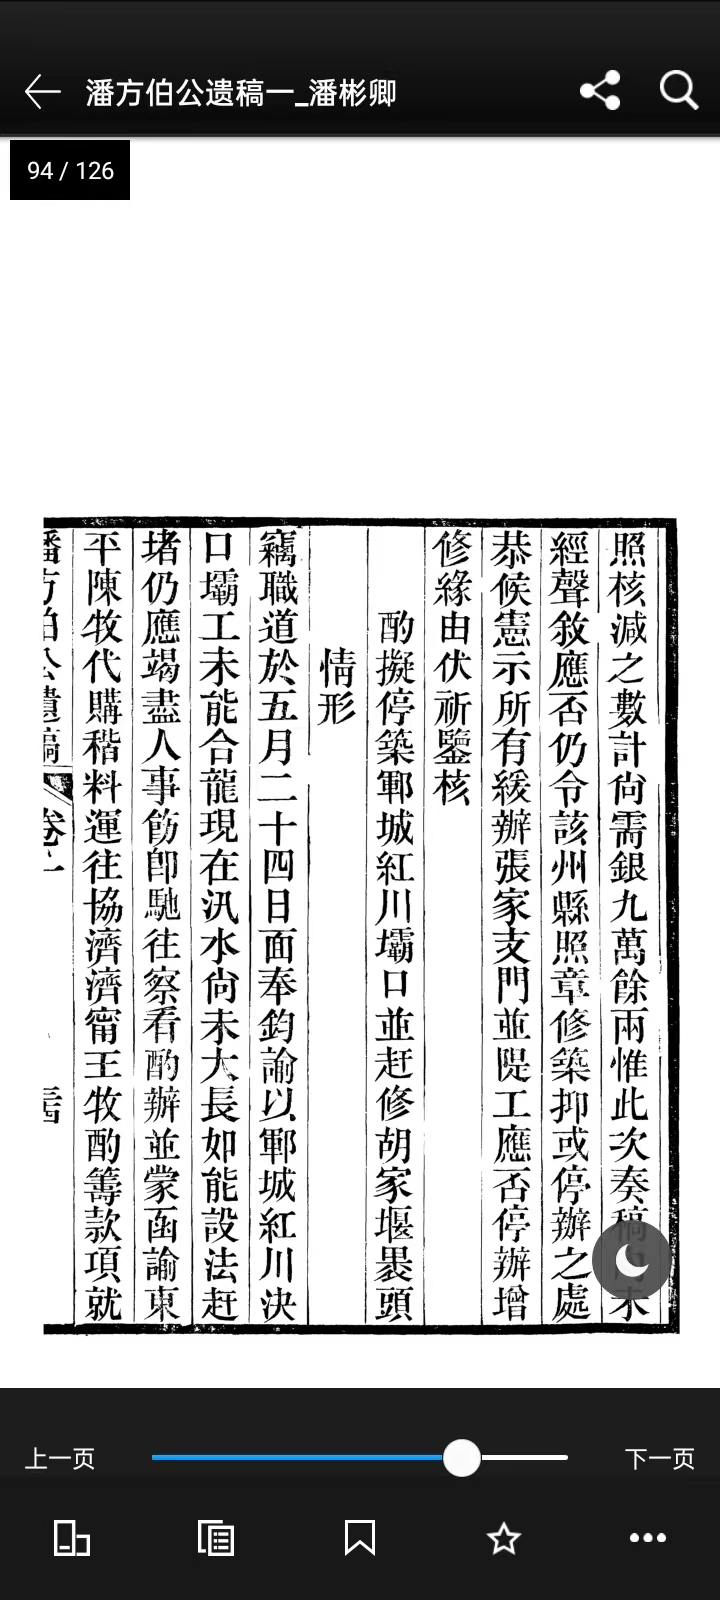 潘方伯公遗稿一_潘彬卿
94 / 126
照核減之數計尙需銀九萬餘兩惟此次奏稿內未
經聲敘應否仍令該州縣照章修築抑或停辦之處
恭候憲示所有緩辦張家支門並隄工應否停辦增
修緣由伏祈鑒核
酌擬停築鄆城紅川壩口並赶修胡家堰裹頭
情形
竊職道於五月二十四日面奉鈞諭以鄆城紅川決
口壩工未能合龍現在汛水尙未大長如能設法赶
堵仍應竭盡人事飭卽馳往察看酌辦並蒙函諭東
平陳牧代購稭料運往協濟濟甯王牧酌籌款項就
潘方伯公遺稿 卷一
上一页
下一页